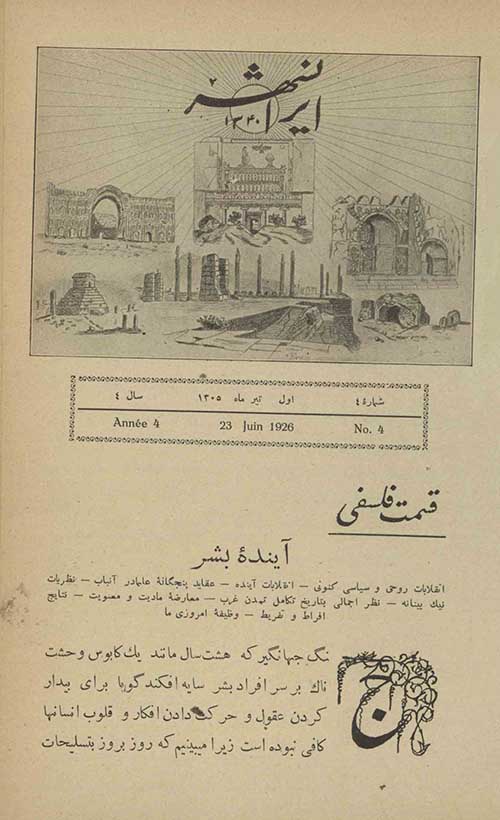 ایرانشهر
۱۳۴۰
شمارهٔ ٤ اول تیر ماه ۱۳۰۵ سال ٤
Année 4 23 Juin 1926 No. 4
قسمت فلسفی
آیندهٔ بشر
انقلابات روحی و سیاسی کنونی — انقلابات آینده — عقاید پنجگانهٔ علما در آنباب — نظریات
نیك بینانه — نظر اجمالی بتاریخ تکامل تمدن غرب — معارضهٔ مادیت و معنویت — نتایج
افراط و تفریط — وظیفهٔ امروزی ما
جنگ جهانگیر که هشت سال مانند یك کابوس وحشت
ناك بر سر افراد بشر سایه افکند گویا برای بیدار
کردن عقول و حرکت دادن افکار و قلوب انسانها
کافی نبوده است زیرا میبینیم که روز بروز بتسلیحات